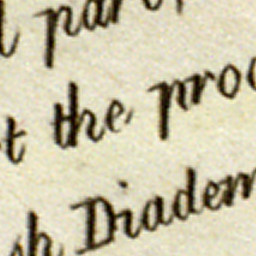 l par
t the proc
sh Diadem